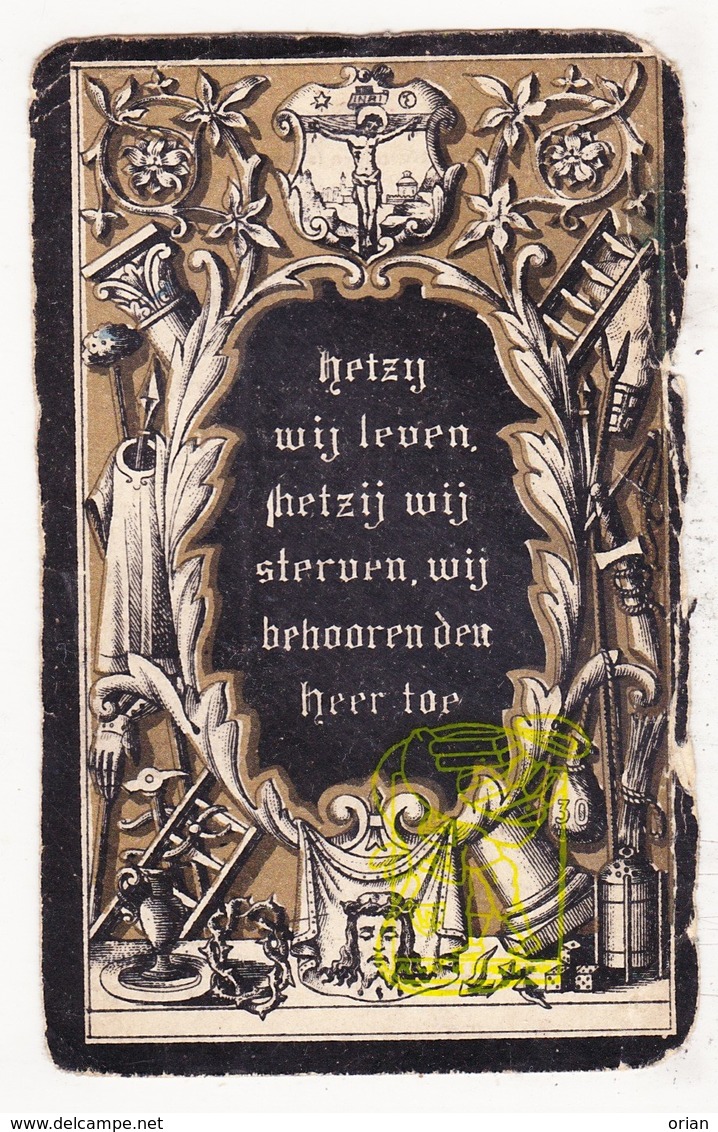 INRI
hetzy
wij leven,
hetzij wij
sterven, wij
behooren den
heer toe
30
www.delcampe.net
orian